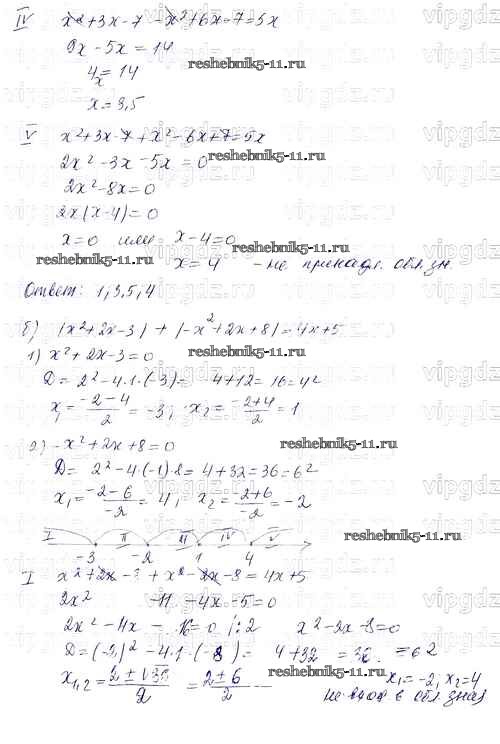 IV x² + 3x - 7 - x² + 6x - 7 = 5x
9x - 5x = 14
4x = 14
x = 3,5
V x² + 3x - 7 + x² - 6x + 7 = 5x
2x² - 3x - 5x = 0
2x² - 8x = 0
2x(x - 4) = 0
x = 0 или x - 4 = 0
x = 4 - не принадл. обл. зн.
Ответ: 1, 3,5, 4
б) |x² + 2x - 3| + |-x² + 2x + 8| = 4x + 5
1) x² + 2x - 3 = 0
D = 2² - 4·1·(-3) = 4 + 12 = 16 = 4²
x₁ = (-2 - 4)/2 = -3; x₂ = (-2 + 4)/2 = 1
2) -x² + 2x + 8 = 0
D = 2² - 4·(-1)·8 = 4 + 32 = 36 = 6²
x₁ = (-2 - 6)/-2 = 4; x₂ = (-2 + 6)/-2 = -2
I II III IV V
-3 -2 1 4
I x² + 2x - 3 + x² - 2x - 8 = 4x + 5
2x² - 11 - 4x - 5 = 0
2x² - 4x - 16 = 0 /:2 x² - 2x - 8 = 0
D = (-2)² - 4·1·(-8) = 4 + 32 = 36 = 6²
x₁,₂ = (2 ± √36)/2 = (2 ± 6)/2 x₁ = -2, x₂ = 4
не вход в обл. знач
reshebnik5-11.ru
vipgdz